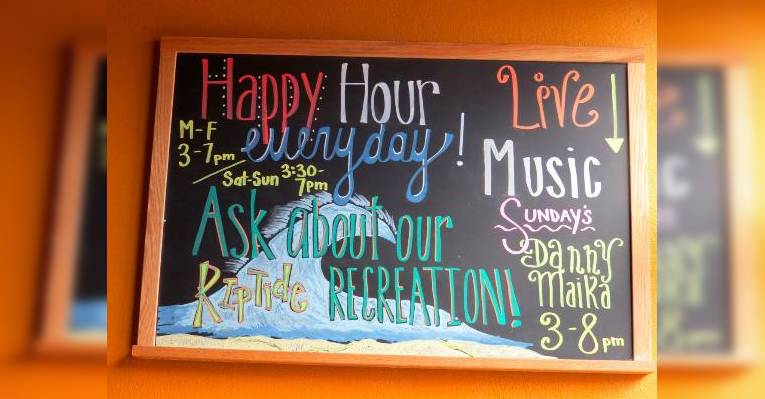 Happy Hour
everyday!
M-F
3-7pm
/ Sat-Sun 3:30-
7pm
Ask about our
Riptide RECREATION!
Live
Music
SUNDAY'S
Danny
Maika
3-8pm